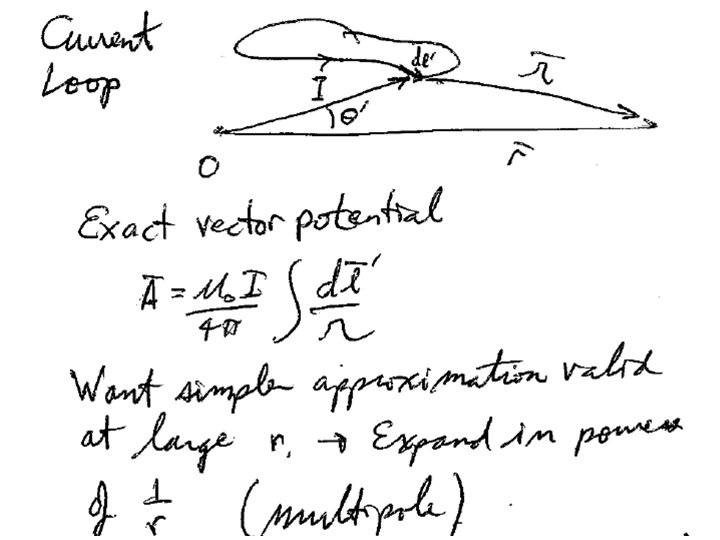 Current
Loop
dl̄'
I
θ'
r̄
O
r̄
Exact vector potential
Ā = μ₀I/4π ∫ dl̄'/r
Want simpler approximation valid
at large r, → Expand in powers
of 1/r (multipole)